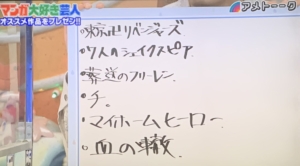 マンガ大好き芸人
オススメ作品をプレゼン!!
アメトーーク
•東京卍リベンジャーズ
•7人のシェイクスピア
•葬送のフリーレン
•チ。
•マイホームヒーロー
•血の轍